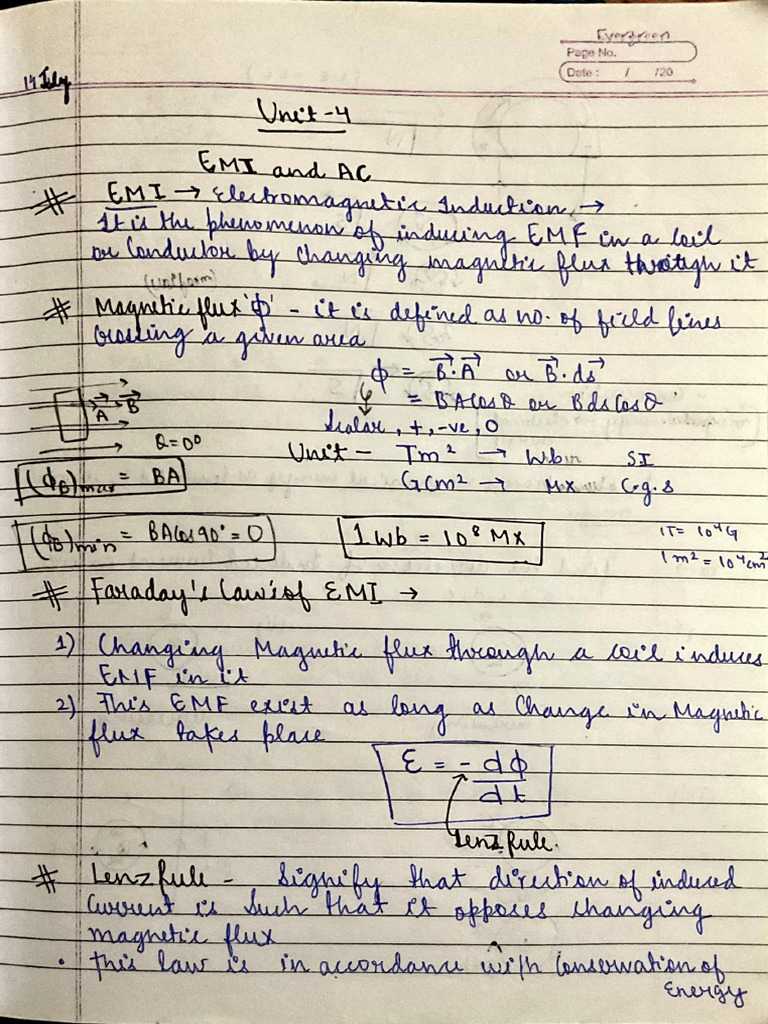 Evergreen
Page No.
Date : / /20
14 July
Unit-4
EMI and AC
# EMI → Electromagnetic Induction →
It is the phenomenon of inducing EMF in a coil
or Conductor by changing magnetic flux through it
(uniform)
# Magnetic flux 'ϕ' - it is defined as no. of field lines
Crossing a given area
ϕ = B⃗·A⃗ or B⃗·ds⃗
= BACosθ or BdsCosθ
Scalar, +, -ve, 0
A⃗ B⃗
θ=0°
Unit - Tm² → Wb SI
(ϕB)max = BA
Gcm² → Mx C.g.s
(ϕB)min = BACos90° = 0
1Wb = 10⁸ Mx
1T = 10⁴G
1m² = 10⁴cm²
# Faraday's Law's of EMI →
1) Changing Magnetic flux through a coil induces
EMF in it
2) This EMF exist as long as Change in Magnetic
flux takes place
Ɛ = - dϕ/dt
Lenz rule.
# Lenz rule - Signify that direction of induced
Current is such that it opposes changing
magnetic flux
• This law is in accordance with Conservation of
Energy